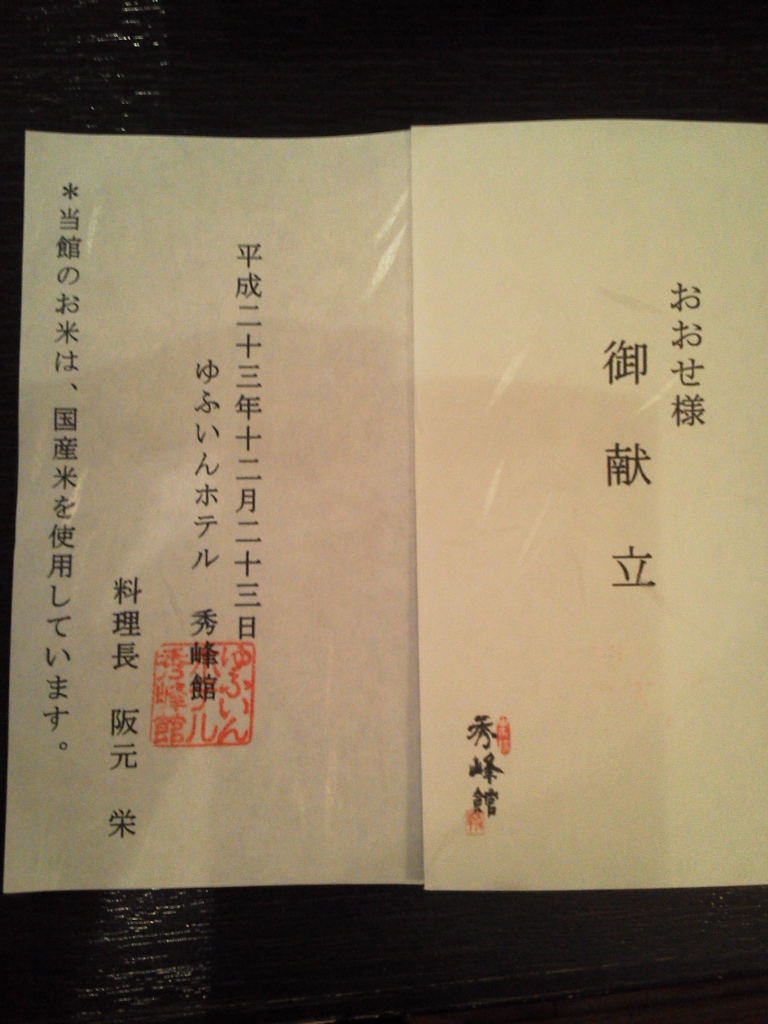 おおせ様
御献立
秀峰館
平成二十三年十二月二十三日
ゆふいんホテル 秀峰館
ゆふいん
ホテル
秀峰館
料理長 阪元 栄
＊当館のお米は、国産米を使用しています。